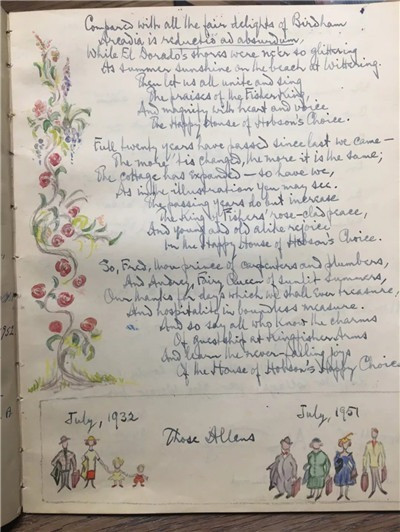 Compared with all the fair delights of Birdham
Arcadia is reduced ad absurdum.
While El Dorado's shores were ne'er so glittering
As summer sunshine on the beach at Wittering.
Then let us all unite and sing
The praises of the Fisher King,
And magnify with heart and voice
The Happy House of Hobson's Choice.
Full twenty years have passed since last we came —
The more 'tis changed, the more it is the same;
The cottage has expanded — so have we,
As in the illustration you may see.
The passing years do but increase
The King Fishers' rose-clad peace,
And young and old alike rejoice
In the Happy House of Hobson's Choice.
So, Fred, thou prince of carpenters and plumbers,
And Audrey, Fairy Queen of sunlit summers,
Our thanks for days which we shall ever treasure,
And hospitality in boundless measure.
And so say all who know the charms
Of guestship at Kingfisher Arms
And learn the never-failing joys
Of the House of Hobson's Happy Choice
July, 1932
July, 1951
Those Allens